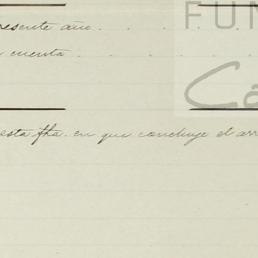 FUN
resente año . . . . . . .
cuenta . . . . . .
Cá
esta fha. en que concluye el arr